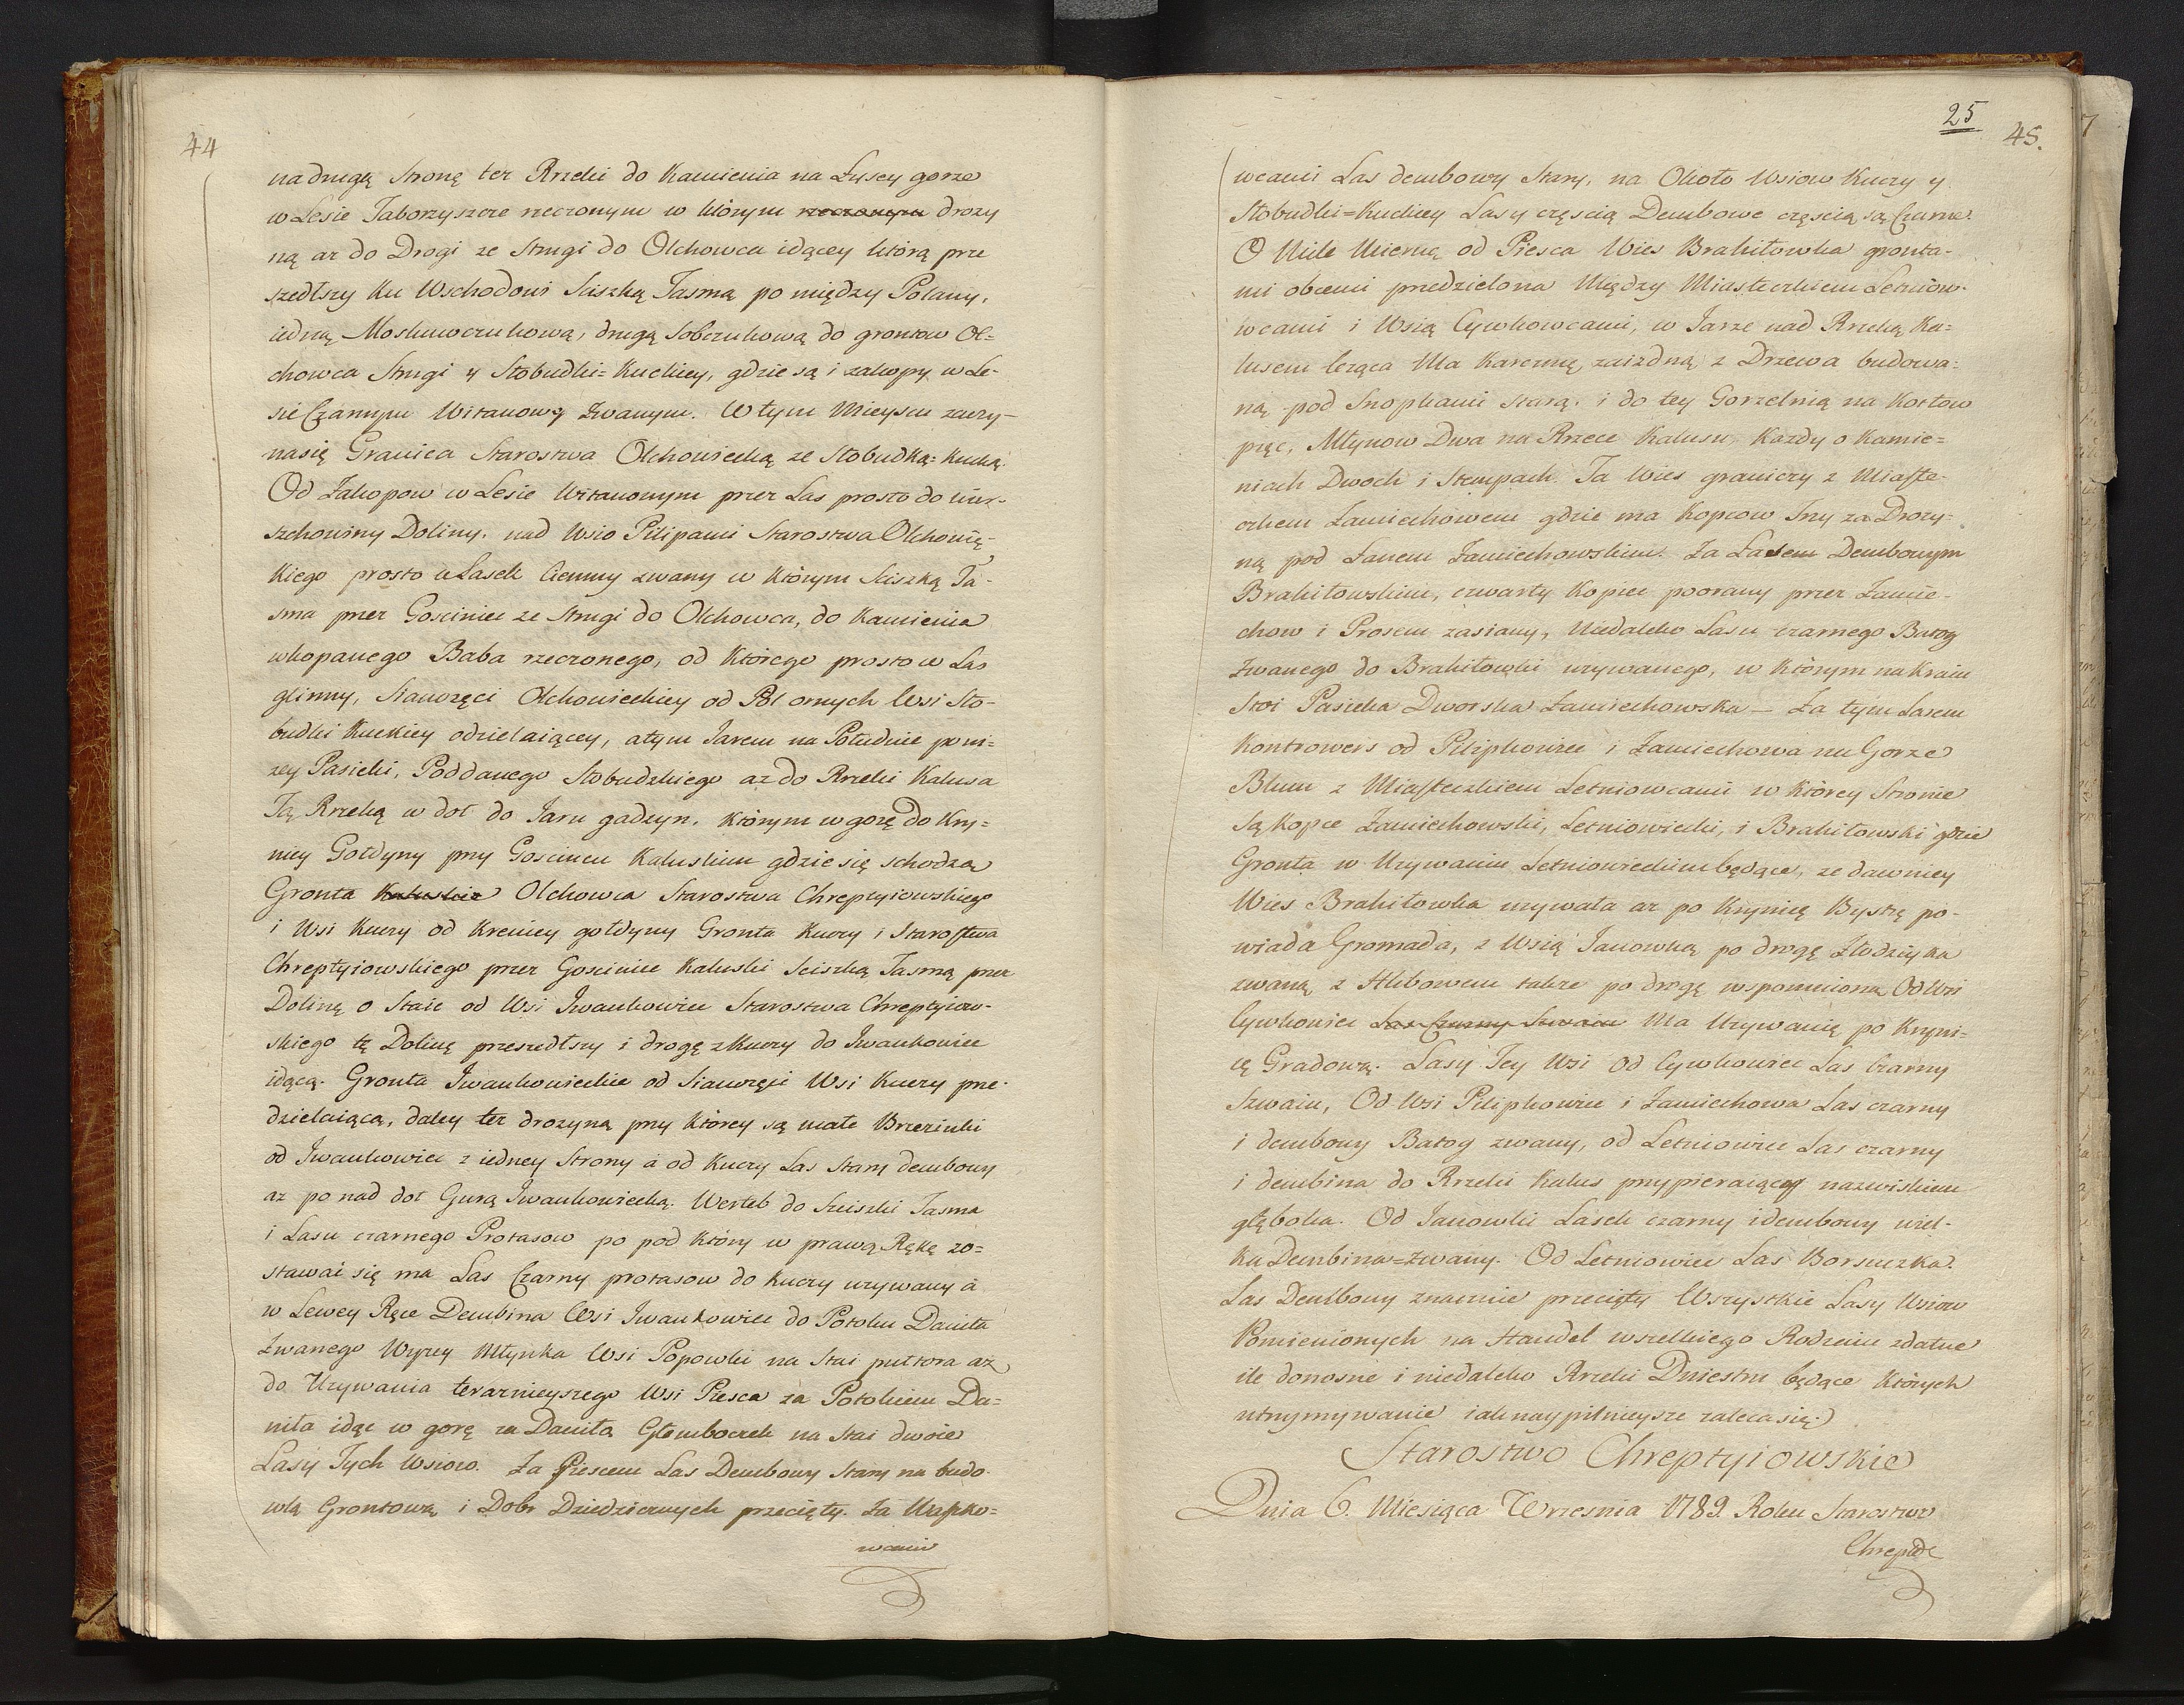 44
na drugą stronę tez Rzeki do Kamienia na Łysey gorze
w Lesie Taborzyszcze rzeczonym w ktorym rzeczonym drozy
ną az do Drogi ze Strugi do Olchowca idącey ktorą prze
szedłszy Ku Wschodowi Sciszką Tasmą po między Polany,
iedną Moskawczukową, drugą Sobczukową do grontow Ol=
chowca Strugi y Słobudki=Kuckiey, gdzie są i zakopy w Le-
sie Czarnym Witanowy Zwanym. W tym Mieyscu zaczy-
na się Granica Starostwa Olchowiecką ze Słobudką=Kucką.
Od Zakopow w Lesie Witanowym przez Las prosto do wier-
szchowiny Doliny, nad Wsio Pilipami Starostwa Olchowię-
Kiego prosto w Lasek Ciemny zwany w Ktorym Sciszką Ta-
sma przez Gosciniec ze Strugi do Olchowca, do Kamienia
wkopanego Baba rzeczonego, od Ktorego prosto w Las
glinny, Sianożęci Olchowieckiey od Pol ornych Wsi Sło-
budki Kuckiey odzielaiącey, a tym Jarem na Południe poni=
zey Pasieki, Poddanego Słobudzkiego az do Rzeki Kalusa
Tą Rzeką w doł do Jaru gadzyn. Ktorym w gorę do Kry=
nicy Gołdyny przy Goscincu Kaluskim gdzie się schodzą
Gronta Kaluskie Olchowca Starostwa Chreptyiowskiego
i Wsi Kuczy od Krenicy gołdyny Gronta Kuczy i Starostwa
Chreptyiowskiego przez Gosciniec Kaluski Sciszką Tasmą przez
Dolinę o Staie od Wsi Iwankowiec Starostwa Chreptyiow-
skiego tę Dolinę przeszedłszy i drogę z Kuczy do Iwankowiec
idącą. Gronta Iwankowieckie od Sianożęci Wsi Kuczy prze-
dzielaiącą, daley tez drozyną przy Ktorey są małe Brzezinki
od Iwankowiec z iedney Strony à od Kuczy Las Stary dembowy
az po nad doł Gurą Iwankowiecką. Werteb do Sciszki Tasma
i Lasu czarnego Protasow po pod Ktory w prawą Rękę zo=
stawać się ma Las Czarny protasow do Kuczy uzywany à
w Lewey Ręce Dembina Wsi Iwankowiec do Potoku Daniła
Zwanego Wyzey Młynka Wsi Popowki na Stai pułtora aż
do Uzywania teraznieyszego Wsi Piesca za Potokiem Da=
niła idąc w gorę za Daniłą Głemboczek na Stai dwoie
Lasy Tych Wsiow. Za Piescem Las Dembowy Stary na budo-
wlą Grontową i Dobr Dziedzicznych przecięty. Za Wapko=
wcami
25
45.
wcami Las dembowy Stary, na Około Wsiow Kuczy y
Słobudki=Kuckiey Lasy częscią Dembowe częscią są Czarne.
O Mile Mierną od Piesca Wies Brahiłowka gronta-
mi obcemi przedzielona Między Miasteczkiem Letniow-
wcami i Wsią Cywkowcami, w Jarze nad Rzeką Ka=
lusem leząca Ma Karczmę zaizdną z Drzewa budowa=
ną pod Snopkami starą. i do tey Gorzelnią na Kotłow
pięć, Młynow Dwa na Rzece Kalusu, Kazdy o Kamie=
niach Dwoch i Stempach. Ta Wies graniczy z Miaste-
czkiem Zamiechowem gdzie ma Kopcow Trzy za Drozy=
ną pod Łanem Zamiechowskim. Za Lasem Dembowym
Brahiłowskim, czwarty Kopiec poorany przez Zamie-
chow i Prosem zasiany, Niedaleko Lasu czarnego Batog
Zwanego do Brahiłowki uzywanego, w Ktorym na Kraiu
Stoi Pasieka Dworska Zamiechowska — Za tym Lasem
Kontrowers od Pilipkowiec i Zamiechowa na Gorze
Blum z Miasteczkiem Letniowcami w Ktorey Stronie
są Kopce Zamiechowski, Letniowiecki, i Brahiłowski gdzie
Gronta w Uzywaniu Letniowieckim będące, ze dawniey
Wies Brahiłowka uzywała az po Krynicę Bystrę po-
wiada Gromada, z Wsią Janowką po drogę Złodziyka
zwaną z Hlibowem takze po drogę wspomnioną Od Wsi
Cywkowiec Las Czarny Szwaiu Ma Uzywanię po Kryni=
cę Gradową. Lasy Tey Wsi Od Cywkowiec Las Czarny
Szwaiu, Od Wsi Pilipkowiec i Zamiechowa Las czarny
i dembowy Batog zwany, od Letniowiec Las czarny
i dembina do Rzeki Kalus przypieraiącey nazwiskiem
głęboka. Od Janowki Lasek czarny i dembowy wiel-
ka Dembina=zwany. Od Letniowiec Las Borsuczka.
Las Dembowy znacznie przecięty Wszystkie Lasy Wsiow
Pomienionych na Handel wszelkiego Rodzaiu zdatne
ile donosne i niedaleko Rzeki Dniestru będące Ktorych
utrzymywanie iak naypilnieysze zaleca się.)
Starostwo Chreptyiowskie
Dnia 6. Miesiąca Wrzesnia 1789. Roku Starostwo
Chrepty